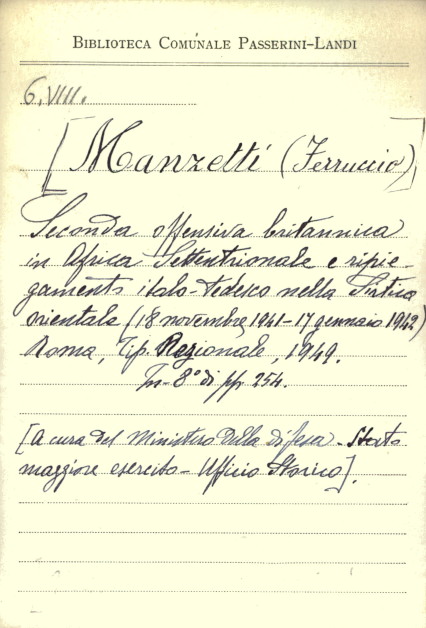 BIBLIOTECA COMUNALE PASSERINI-LANDI
6.VIII.
[Manzetti (Ferruccio)]
Seconda offensiva britannica
in Africa Settentrionale e ripie-
gamento italo-tedesco nella Sirtica
orientale (18 novembre 1941-17 gennaio 1942)
Roma, Tip. Regionale, 1949.
In-8° di pp. 254.
[A cura del Ministero della difesa - Stato
maggiore esercito - Ufficio Storico].